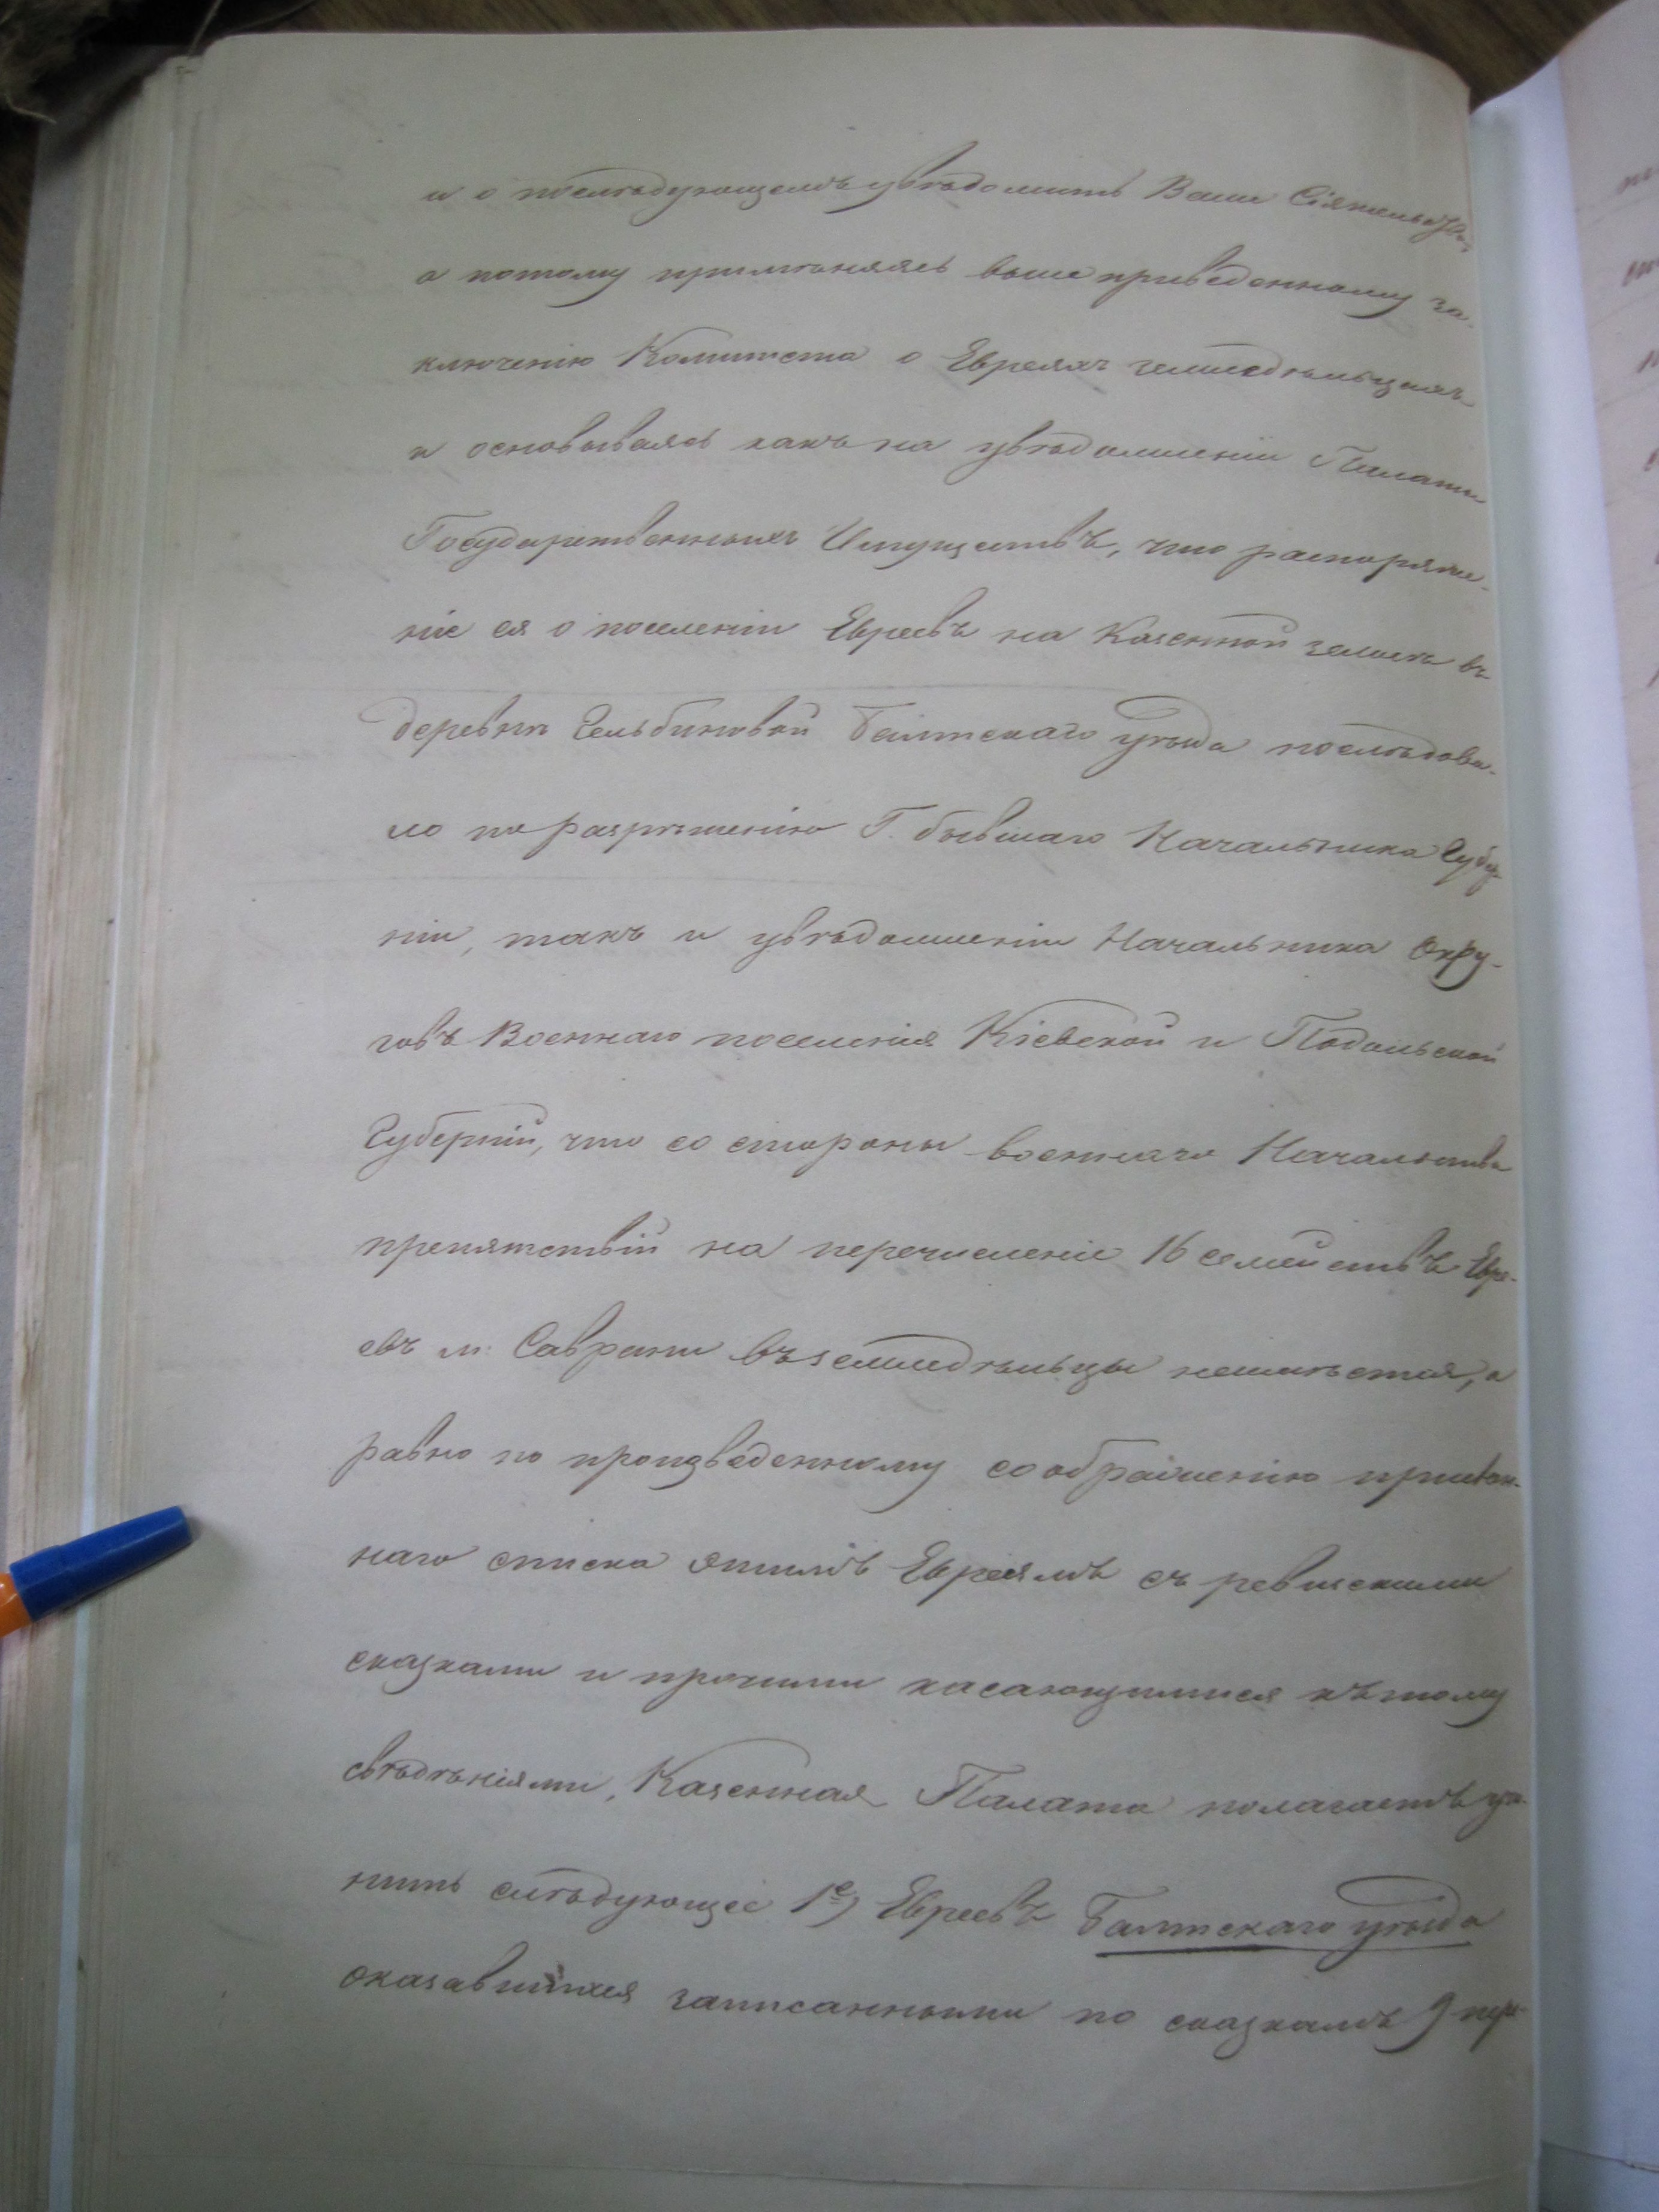 и о послѣдующемъ увѣдомить Ваше Сіятельство,
а потому примѣняясь выше приведенному за-
ключенію Комитета о Евреяхъ земледѣльцахъ
и основываясь какъ на увѣдомленіи Палаты
Государственныхъ Имуществъ, что распоряже-
ніе ея о поселеніи Евреевъ на Казенной землѣ въ
деревнѣ Гельбиновой Балтскаго уѣзда послѣдова-
ло по разрѣшенію Г. бывшаго Начальника Губер-
ніи, такъ и увѣдомленіи Начальника Окру-
говъ Военнаго поселенія Кіевской и Подольской
Губерній, что со стороны военнаго Начальства
препятствій на перечисленіе 16 семействъ Евре-
евъ м: Саврани въ земледѣльцы неимѣется, а
равно по произведенному соображенію
наго списка этимъ Евреямъ съ ревизскими
сказками и прочими касающимися къ тому
свѣдѣніями, Казенная Палата полагаетъ учи-
нить слѣдующее 1е) Евреевъ Балтскаго уѣзда
оказавшихся записанными по сказкамъ 9